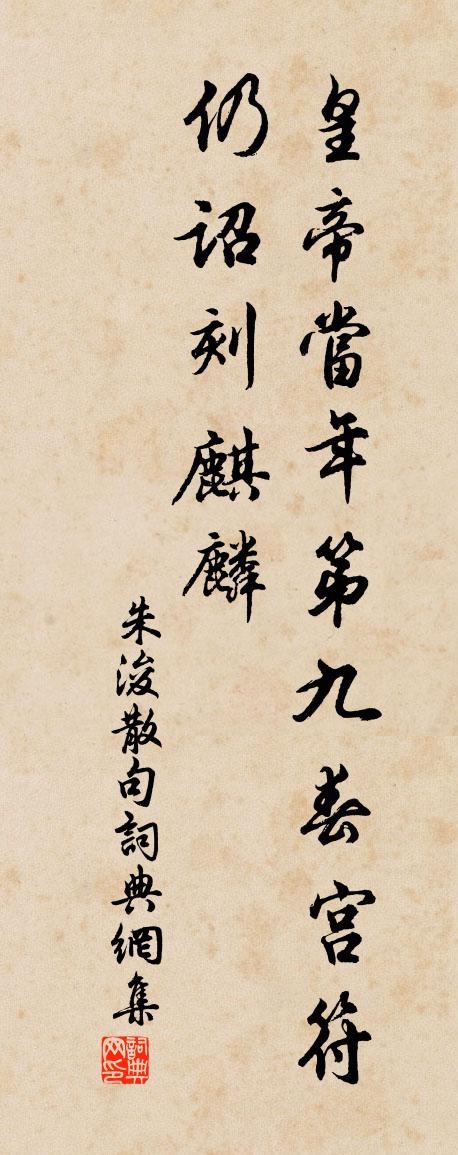 皇帝當年第九春宮符
仍詔刻麒麟
朱浚散句詞典網集
詞典网印